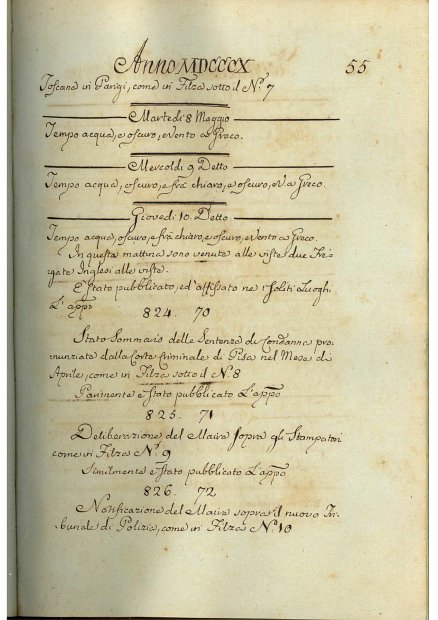 Anno MDCCCX 55
Toscana in Parigi, come in Filza sotto il N.º 7
Martedi 8 Maggio
Tempo acqua, e oscuro, e Vento a Greco.
Mercoldi 9 Detto
Tempo acqua, oscuro, e frà chiaro, e oscuro, e V a Greco.
Giovedi 10. Detto
Tempo acqua, oscuro, e frà chiaro, e oscuro, e Vento a Greco.
In questa mattina sono venute alle viste due Fre-
gate Inglesi alle viste.
E Stato pubblicato, ed' affissato ne i Soliti Luoghi
L'appo
824. 70
Stato Sommario delle Sentenze di Condanna pro-
nunziata dalla Corte Criminale di Pisa nel Mese di
Aprile, come in Filza sotto il N. 8
Parimente e Stato pubblicato L'appo
825. 71
Deliberazione del Maire Sopra gli Stampatori
come in Filza N.º 9
Similmente e Stato pubblicato L'appo
826. 72
Notificazione del Maire sopra il nuovo Tri-
bunale di Polizia, come in Filza N.º 10